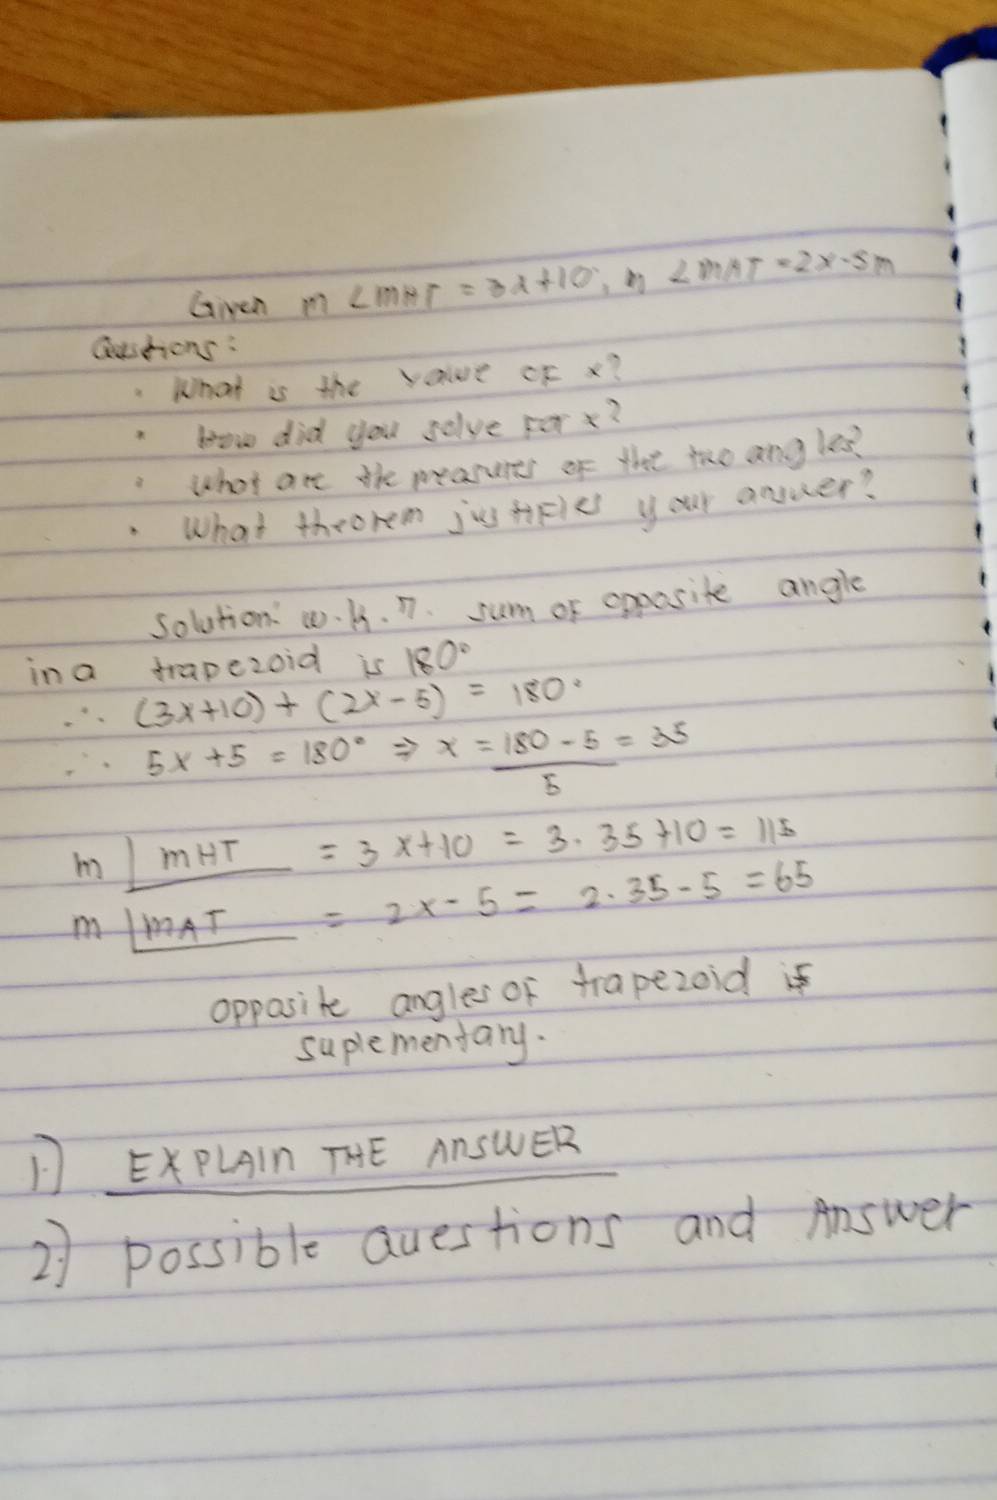 Given m ∠MHT = 3x+10, m ∠MAT = 2x-5m
Questions:
· What is the value of x?
· How did you solve for x?
· What are the measures of the two angles?
· What theorem justifies your answer?
Solution: w.k.T. sum of opposite angle
in a trapezoid is 180°
∴ (3x+10) + (2x-5) = 180°
∴ 5x+5 = 180° ⇒ x = 180-5 = 35
5
m MHT = 3x+10 = 3.35+10 = 115
m MAT = 2x-5 = 2.35-5 = 65
opposite angles of trapezoid is
suplementary.
1.) EXPLAIN THE ANSWER
2.) possible Questions and Answer